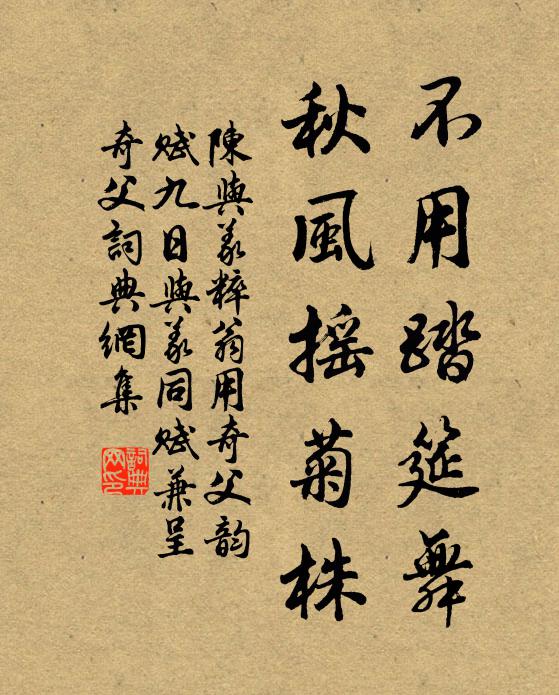 不用踏筵舞
秋風搖菊株
陳與義粹翁用奇父韵
賦九日與義同賦兼呈
奇父詞典網集
詞典网印